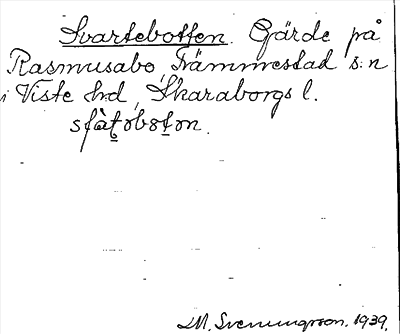 Svartebotten. Gärde på
Rasmusabo, Främmestad s:n
i Viste hd, Skaraborgs l.
M. Svenungsson. 1939.